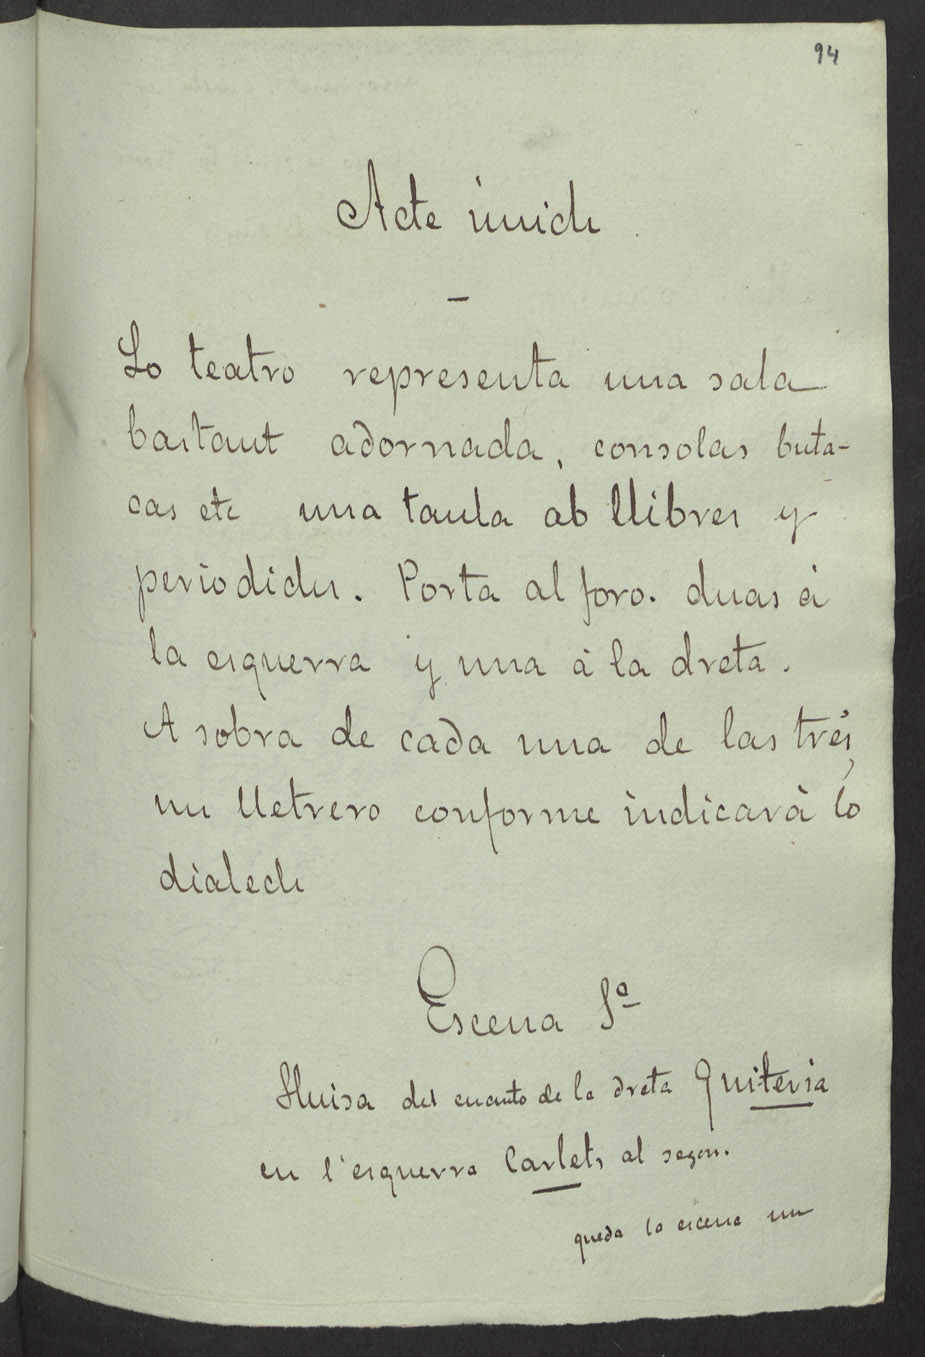 94
Acte únich
—
Lo teatro representa una sala
bastant adornada, consolas buta-
cas etc una taula ab llibres y
periodichs. Porta al foro. duas á
la esquerra y una á la dreta.
A sobra de cada una de las trés,
un lletrero conforme indicará lo
dialech
Escena 1ª
Lluisa del cuarto de la dreta Quiteria
en l'esquerra Carlets al segon.
queda la escena un